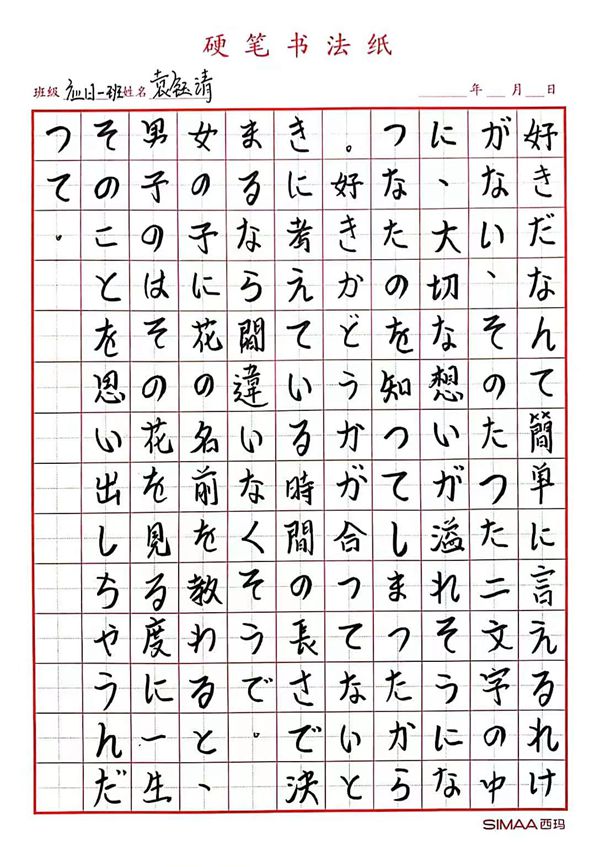 硬笔书法纸
班级 应日一班 姓名 袁钰清 年 月 日
好きだなんて簡単に言えるれけ
がない、そのたつた二文字の中
に、大切な想いが溢れそうにな
つなたのを知つてしまつたから
。好きかどうかが合つてないと
きに考えている時間の長さで決
まるなら間違いなくそうで。
女の子に花の名前を教わると、
男子のはその花を見る度に一生
そのことを思い出しちやうんだ
つて。
SIMAA西玛